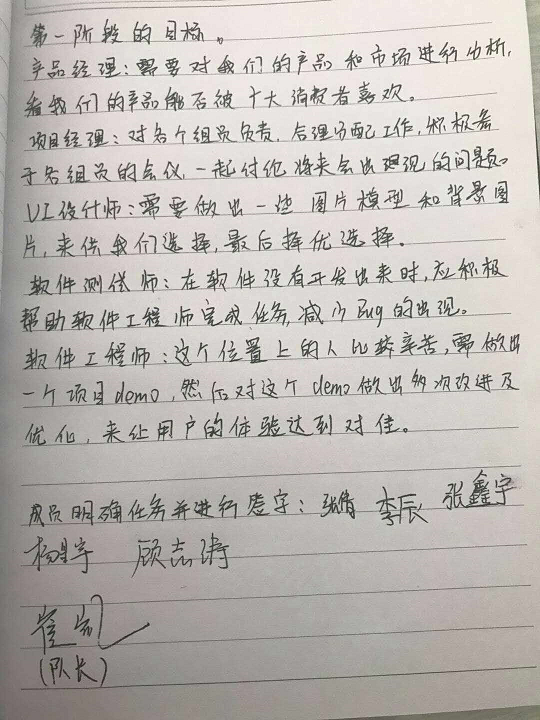 第一阶段的目标。
产品经理：需要对我们的产品和市场进行分析，
看我们的产品能否被广大消费者喜欢。
项目经理：对各个组员负责，合理分配工作，积极参
于各组员的会议，一起讨论将来会出现的问题。
UI设计师：需要做出一些图片模型和背景图
片，来供我们选择，最后择优选择。
软件测试师：在软件没有开发出来时，应积极
帮助软件工程师完成任务，减少Bug的出现。
软件工程师：这个位置上的人比较辛苦，需做出
一个项目demo，然后对这个demo做出多次改进及
优化，来让用户的体验达到对佳。
成员明确任务并进行签字：张倩 李辰 张鑫宇
顾志涛
(队长)